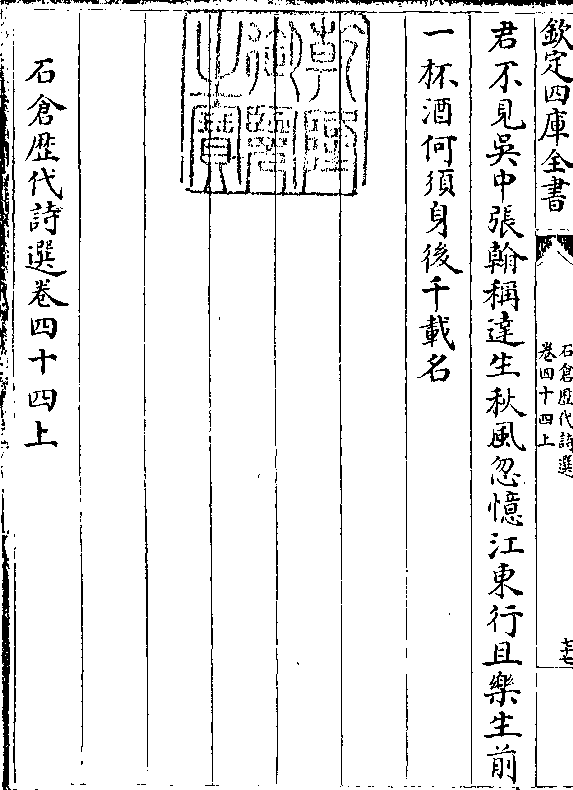 欽定四庫全書
石倉歴代詩選
卷四十四上
君不見吳中張翰稱達生秋風忽憶江東行且樂生前
一杯酒何須身後千載名
乾隆御覽之寶
石倉歴代詩選卷四十四上